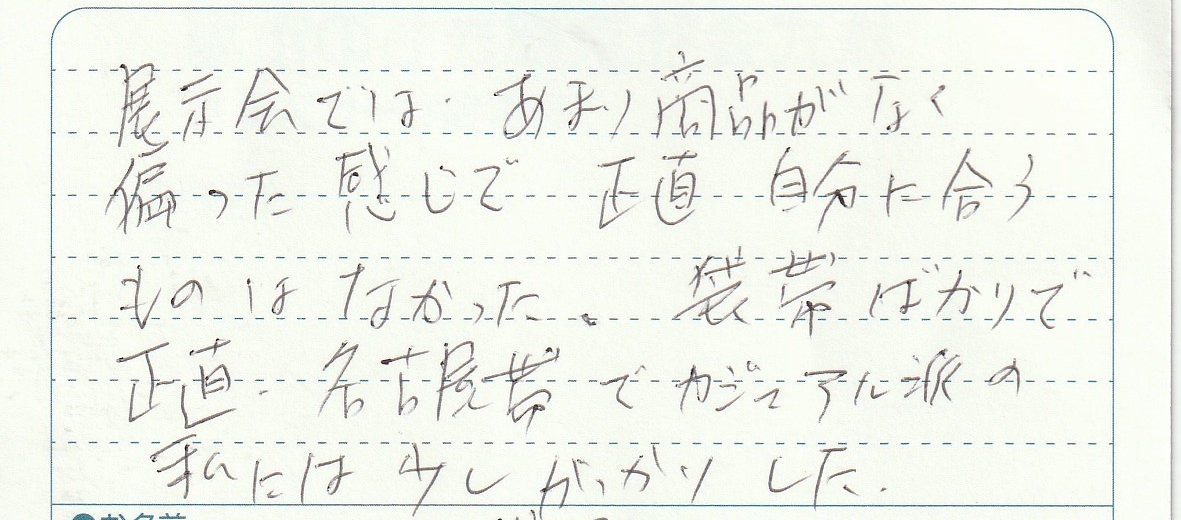 展示会では、あまり商品がなく
偏った感じで 正直 自分に合う
ものはなかった。袋帯ばかりで
正直、名古屋帯でカジュアル派の
私には少しがっかりした.